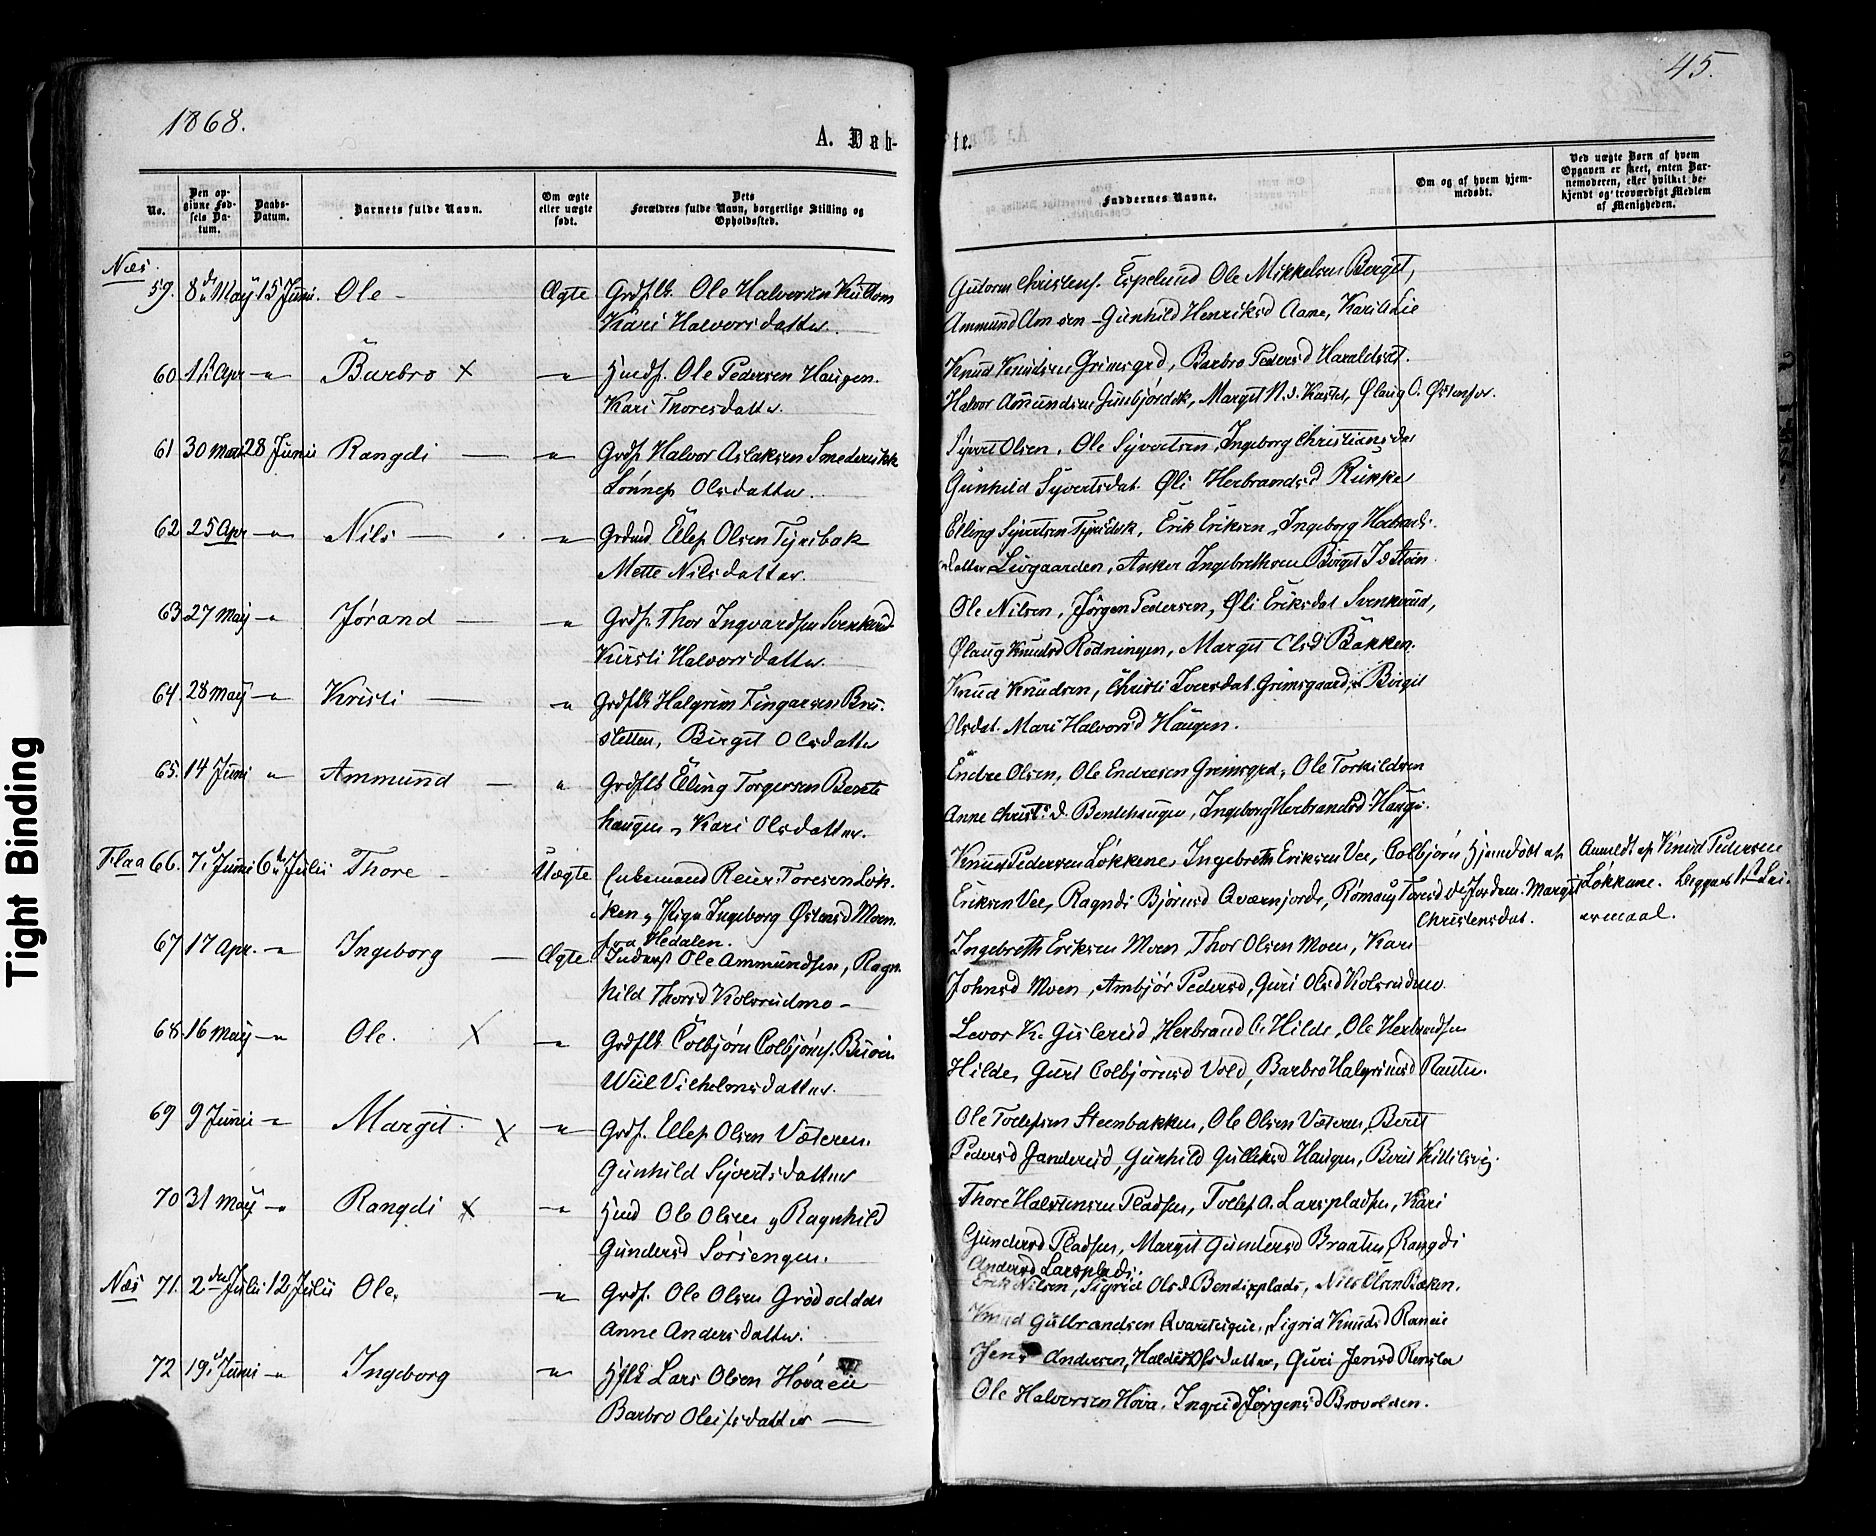 45.
1868.
A. Døb-
te.
No.
Den op-
givne Fød-
sels Da-
tum.
Daabs-
Datum.
Barnets fulde Navn.
Om ægte
eller uægte
født.
Dets
Forældres fulde Navn, borgerlige Stilling og
Opholdssted.
Faddernes Navne.
Om og af hvem hjem-
medøbt.
Ved uægte Børn af hvem
Opgaven er skeet, enten Bar-
nemoderen, eller hvilket be-
kjendt og troværdigt Medlem
af Menigheden.
Næs.
59. 8de May 15 Juni. Ole - Ægte Grdflk. Ole Halvorsen
Kari Halvorsdatter.
Guttorm Christens. Espelund Ole Mikkelsen Berget,
Ammund Gunhild Henriksd Aane, Kari
60 Apr -"- Barbro X -"- Ole Pedersen Haugen.
Kari Thoresdatter.
Knud Knudsen Grimsgrd, Barbro Pedersd Haraldset.
Halvor Amundsen Margit N.d. Ølaug O.
61 30 Mai 28 Junii Rangdi -"- Grdf Halvor Aslaksen
Lönnep Olsdatter.
Syvert Olsen, Ole Syvertsen, Ingeborg Christiansdat
Gunhild Syvertsdat. Øli Herbrandsd Rukke
62 25 Apr -"- Nils -"- Ellef Olsen Tyribak
Mette Nilsdatter.
Elling Syvertsen Erik Eriksen, Ingeborg
datter Livgaarden, Anker Ingebrethsen Birgit
63 27 May -"- Jørand -"- Grdf. Thor Ingvardsen Svenkerud
Kirsti Halvorsdatter.
Ole Nilsen, Jörgen Pedersen, Øli Eriksdat Svenkerud,
Ølaug Knudsd Rodningen, Margit Olsd Bakken.
64. 28 May -"- Kristi -"- Grdflk Halgrim Fingarsen Bru-
sletten, Birgit Olsdatter
Knud Knudsen, Christi Iversdat. Grimsgaard, Birgit
Olsdat. Mari Halvorsd Haugen.
65. 14 Juni -"- Ammund -"- Grdflk Elling Torgersen Bente
haugen, Kari Olsdatter.
Endre Olsen, Ole Endresen Grimsgrd, Ole Torkildsen
Anne Christ. d. Bentehaugen, Ingeborg Herbrandsd
Flaa 66. 7de Juni 6te Julii Thore - Uægte Reier Toresen Løk-
ken, Pige Ingeborg Østensd Moen
fra Hedalen.
Knud Pedersen Løkkene, Ingebreth Eriksen Vee, Colbjörn
Eriksen Vee, Ragndi Björnsd Qværnjorde,
Hjemdöbt af
Jordem. Margit
Christensdat.
Anmeldt af Knud Pedersen
Løkkene. 1ste Lei-
ermaal.
67 17 Apr. -"- Ingeborg - Ægte Inderst Ole Ammundsen, Ragn-
hild Thorsd Kolsrudmo -
Ingebreth Eriksen Moen, Thor Olsen Moen, Kari
Johnsd Moen, Ambjör Pedersd, Guri Olsd Kolsrudmo
68. 16 May -"- Ole. X -"- Grdflk Colbjörn Colbjörns.
Wiil Vilhelmsdatter.
Levor K. Gislerud, Herbrand O. Hilde, Ole Herbrandsen
Hilde, Guri Colbjörnsd Vold, Barbro Halgrimsd
69 9 Junii -"- Margit. X -"- Grdf. Ellef Olsen Væteren.
Gunhild Syvertsdatter
Ole Tollefsen Steenbakken, Ole Olsen Væteren, Berit
Pedersd Gandrud, Gunhild Gulliksd Haugen, Berit
70 31 May -"- Rangdi X -"- Ole Olsen, Ragnhild
Gundersd Sörsengen.
Thore Halstensen Pladsen, Tollef A. Larspladsen, Kari
Gundersd Pladsen, Margit Gundersd Braaten, Rangdi
Andersd Larsplads.
Næs 71. 2den Julii 12 Julii Ole, -"- Grdf. Ole Olsen Grödodden
Anne Andersdatter.
Erik Nilsen, Sigrid Ols d. Bendixplads, Nils Olsen Bakken,
Knud Gulbrandsen Sigrid Knudsd
72 19de Juni -"- Ingeborg -"- Lars Olsen
Barbro Oleifsdatter -
Jens Andersen, datter, Guri Jensd
Ole Halvorsen Höva, Ingrid Jörgensd Brovolden.
Tight Binding